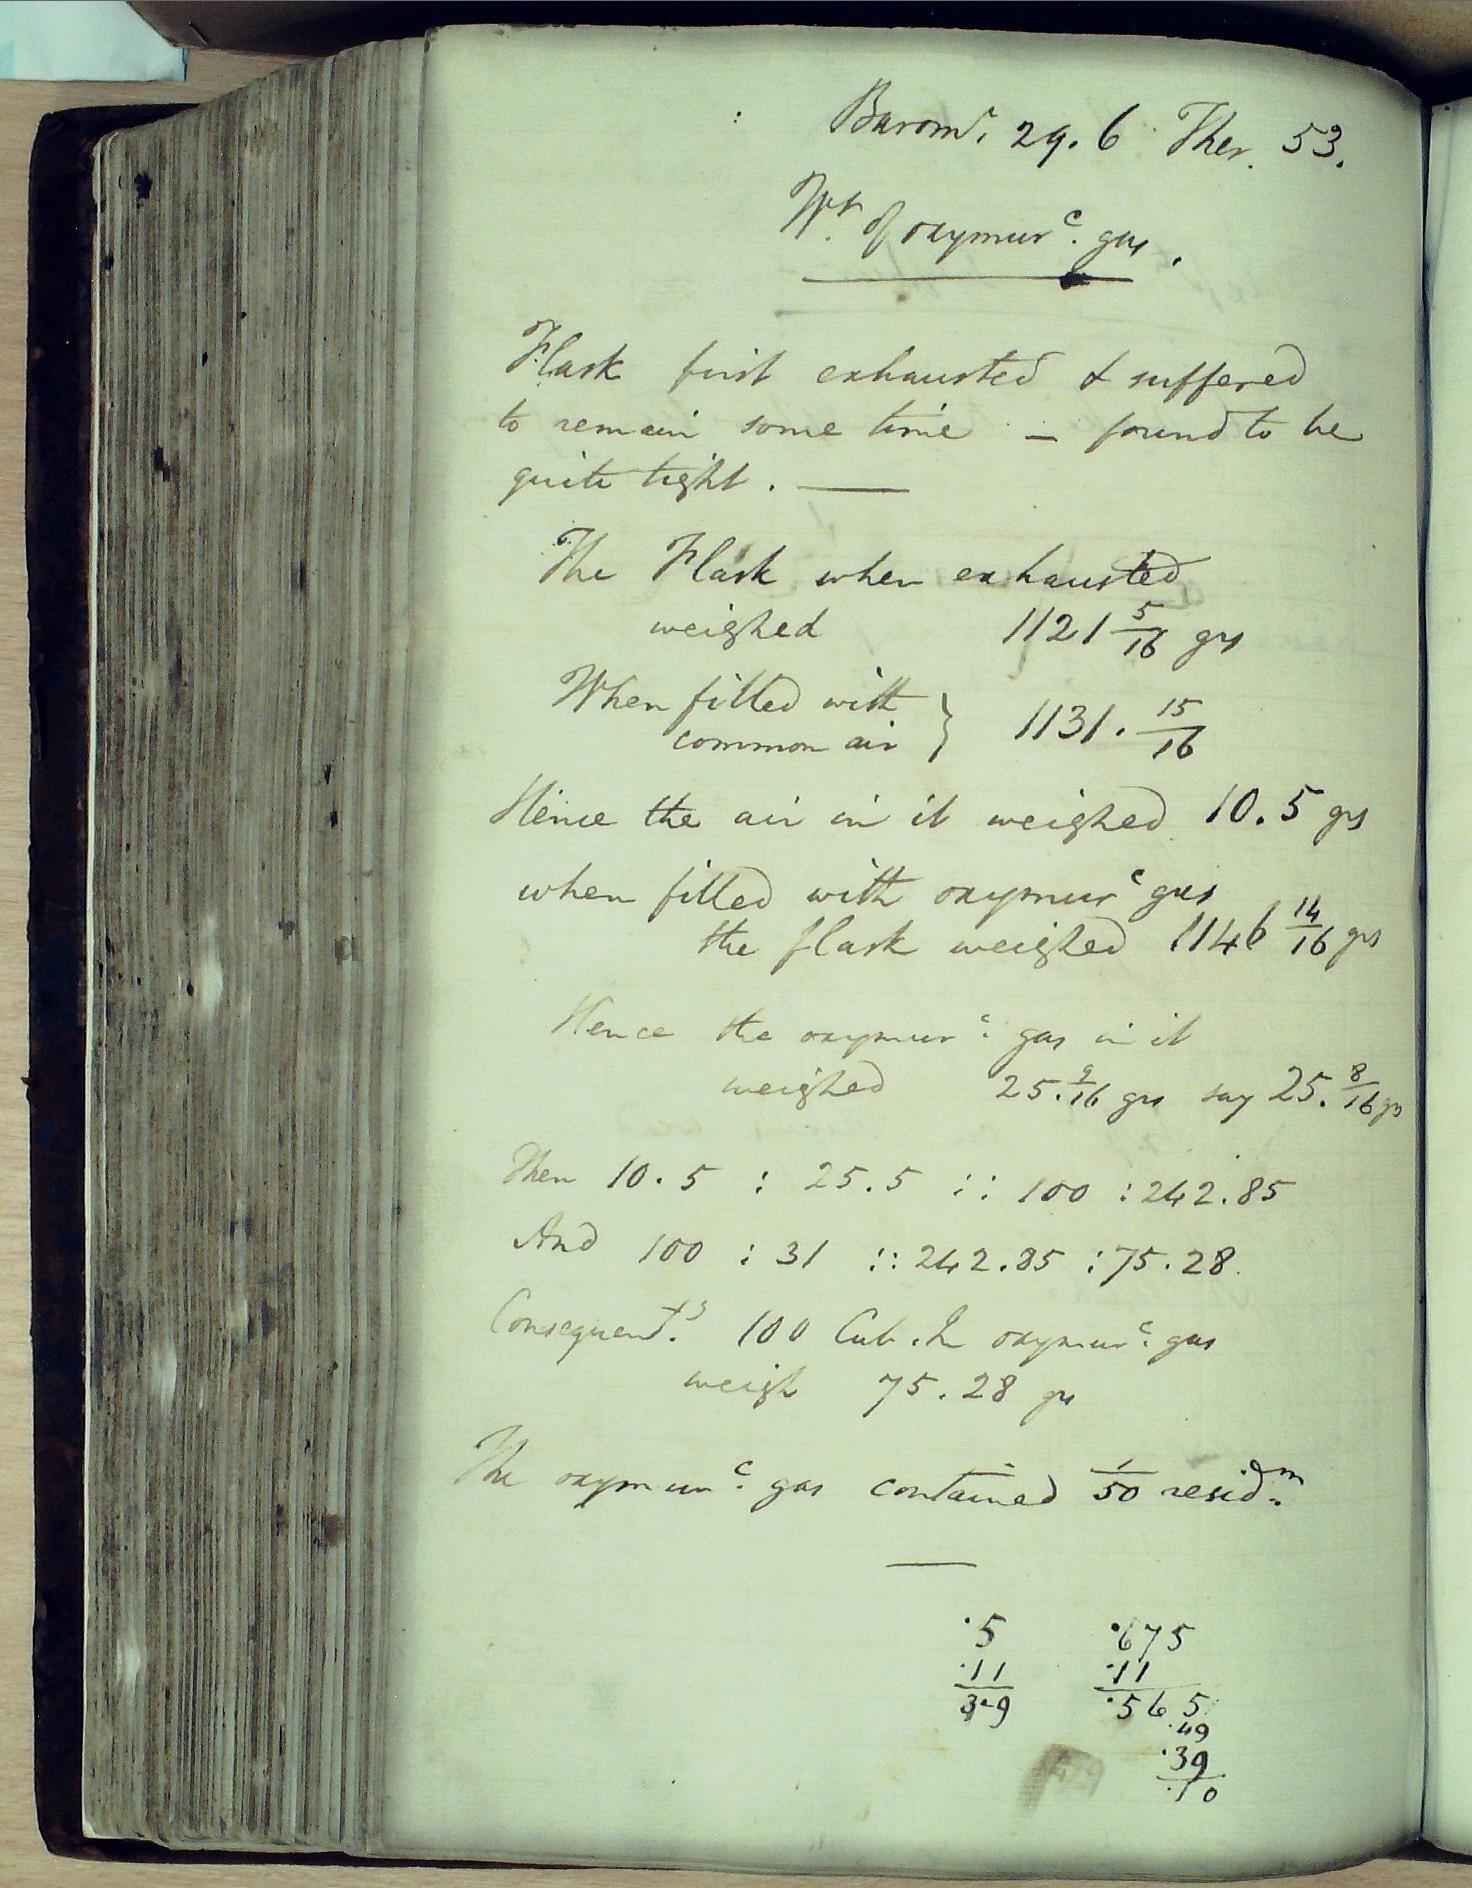 Barom.r 29.6 Ther. 53.
Wt. of oxymur.c gas.
Flask first exhausted & suffered
to remain some time — found to be
quite tight. —
The Flask when exhausted
weighed 1121 5/16 grs
When filled with } 1131. 15/16
common air
Hence the air in it weighed 10.5 grs
when filled with oxymur.c gas
the flask weighed 1146 14/16 grs
Hence the oxymur.c gas in it
weighed 25. 9/16 grs say 25. 8/16 grs
Then 10.5 : 25.5 :: 100 : 242.85
And 100 : 31 :: 242.85 : 75.28.
Consequent.ly 100 Cub. In oxymur.c gas
weigh 75.28 grs
The oxymur.c gas contained 1/50 resid.m
.5 .675
.11 .11
3.9 .565
.49
.39
.10